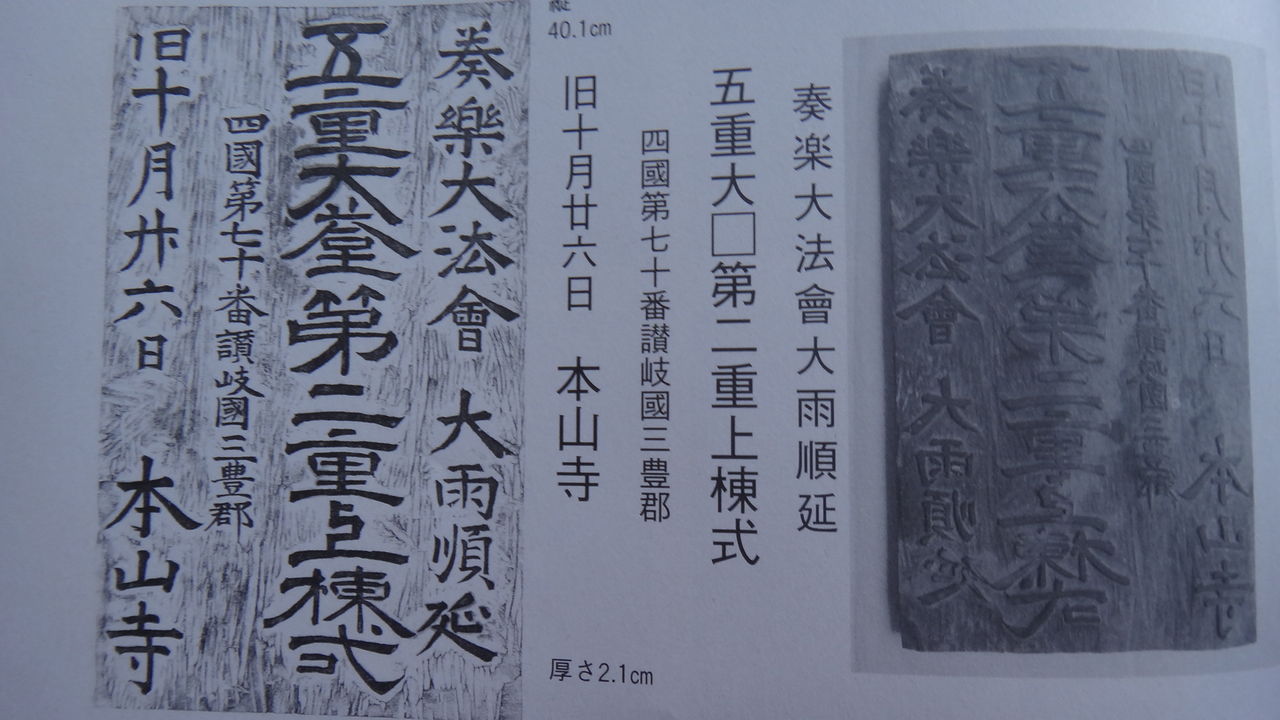 奏樂大法會 大雨順延
五重大第二重上棟式
四國第七十番讃岐國三豊郡
旧十月廿六日 本山寺
40.1cm
厚さ2.1cm
奏楽大法會大雨順延
五重大□第二重上棟式
四國第七十番讃岐國三豊郡
旧十月廿六日 本山寺
奏樂大法會 大雨順延
五重大第二重上棟式
四國第七十番讃岐國三豊郡
旧十月廿六日 本山寺